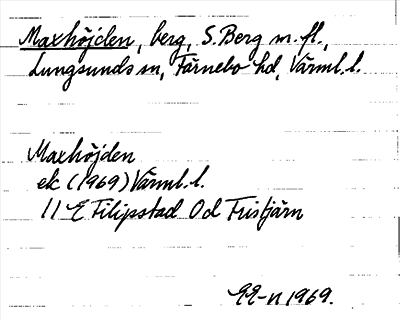 Maxhöjden, berg, S. Berg m. fl.,
Lungsunds sn, Färnebo hd, Värml. l.
Maxhöjden
ek (1969) Värml. l.
11 E Filipstad 0 d Tristjärn
1969.